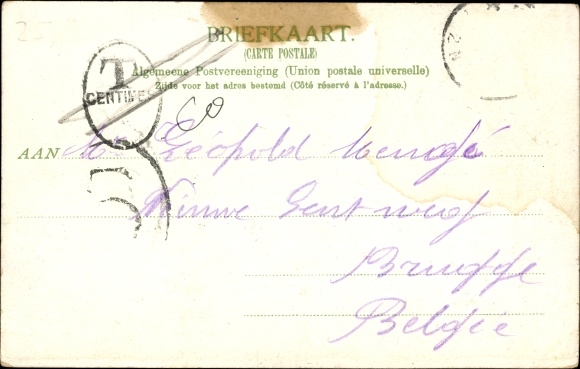 BRIEFKAART.
(CARTE POSTALE)
Algemeene Postvereeniging (Union postale universelle)
Zijde voor het adres bestemd (Côté réservé à l'adresse.)
T
CENTIMES
60
AAN Mr Léopold
Nieuwe Gentweg
Brugge
België